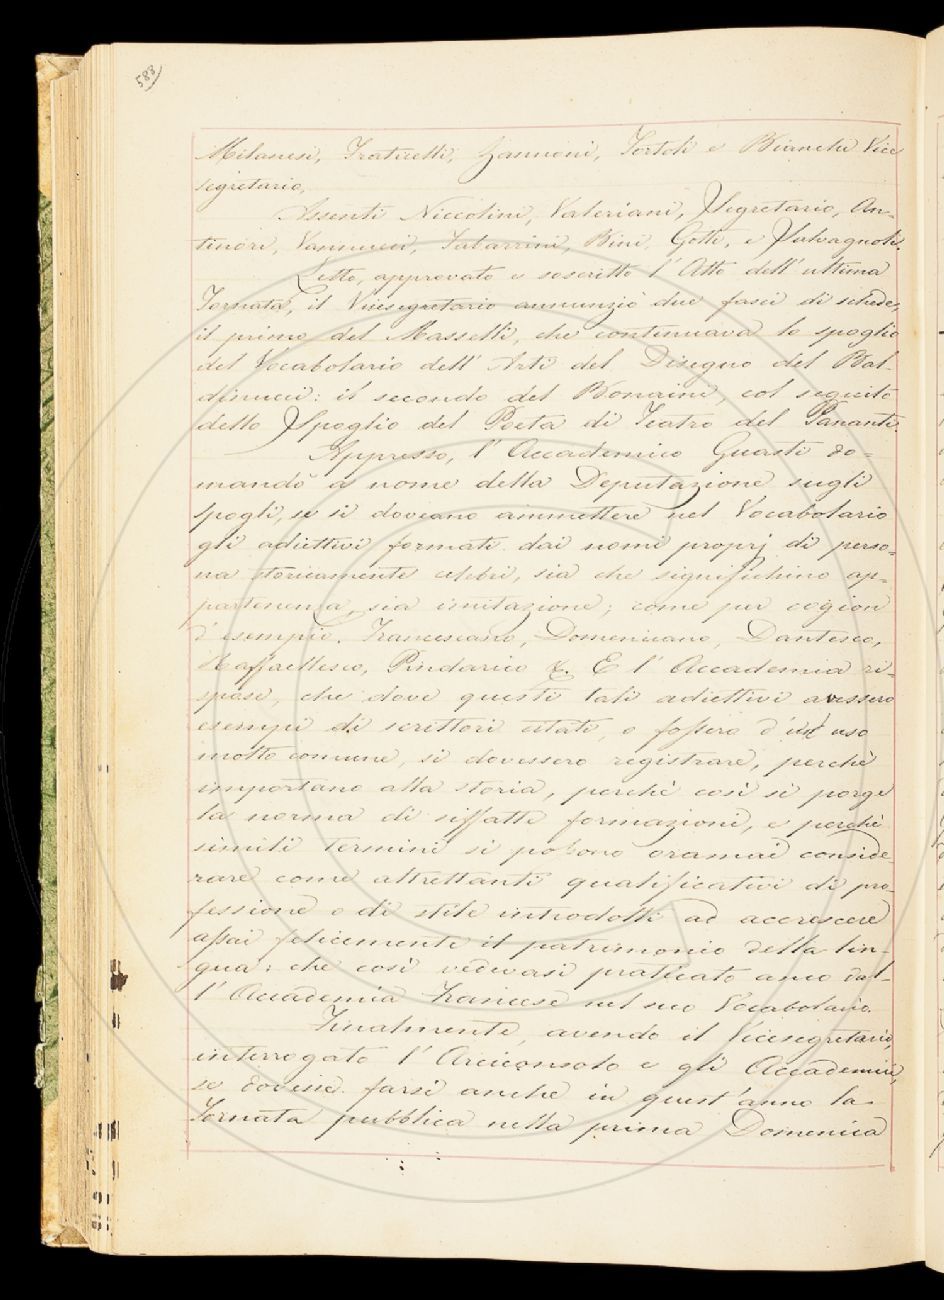 588
Milanesi, Fraticelli, Zannoni, Tortoli e Bianchi Vice
segretario.
Assenti Niccolini, Valeriani, Segretario, An-
tinori, Vannucci, Tabarrini, Bini, Gotti, e Salvagnoli.
Letto, approvato e soscritto l'Atto dell'ultima
Tornata, il Vicesegretario annunziò due fasci di schede,
il primo del Masselli, che continuava lo spoglio
del Vocabolario dell'Arti del Disegno del Bal-
dinucci: il secondo del Bonaini, col seguito
dello Spoglio del Poeta di Teatro del Pananti.
Appresso, l'Accademico Guasti do=
mandò a nome della Deputazione sugli
spogli, se si doveano ammettere nel Vocabolario
gli adiettivi formati dai nomi proprj di perso=
na storicamente celebri, sia che significhino ap=
partenenza, sia imitazione; come per cagion
d'esempio. Francescano, Domenicano, Dantesco,
Raffaellesco, Pindarico &. E l'Accademia ri-
spose, che dove questi tali adiettivi avessero
esempi di scrittori citati, o fossero d'un uso
molto comune, si dovessero registrare, perchè
importano alla storia, perchè così si porge
la norma di siffatte formazioni, e perchè
simili termini si possono oramai conside-
rare come altrettanti qualificativi di pro-
fessione o di stile introdotti ad accrescere
assai felicemente il patrimonio della lin-
gua: che così vedevasi praticato anco dal-
l'Accademia Francese nel suo Vocabolario.
Finalmente, avendo il Vicesegretario,
interrogato l'Arciconsolo e gli Accademici,
se dovesse farsi anche in quest'anno la
Tornata pubblica nella prima Domenica